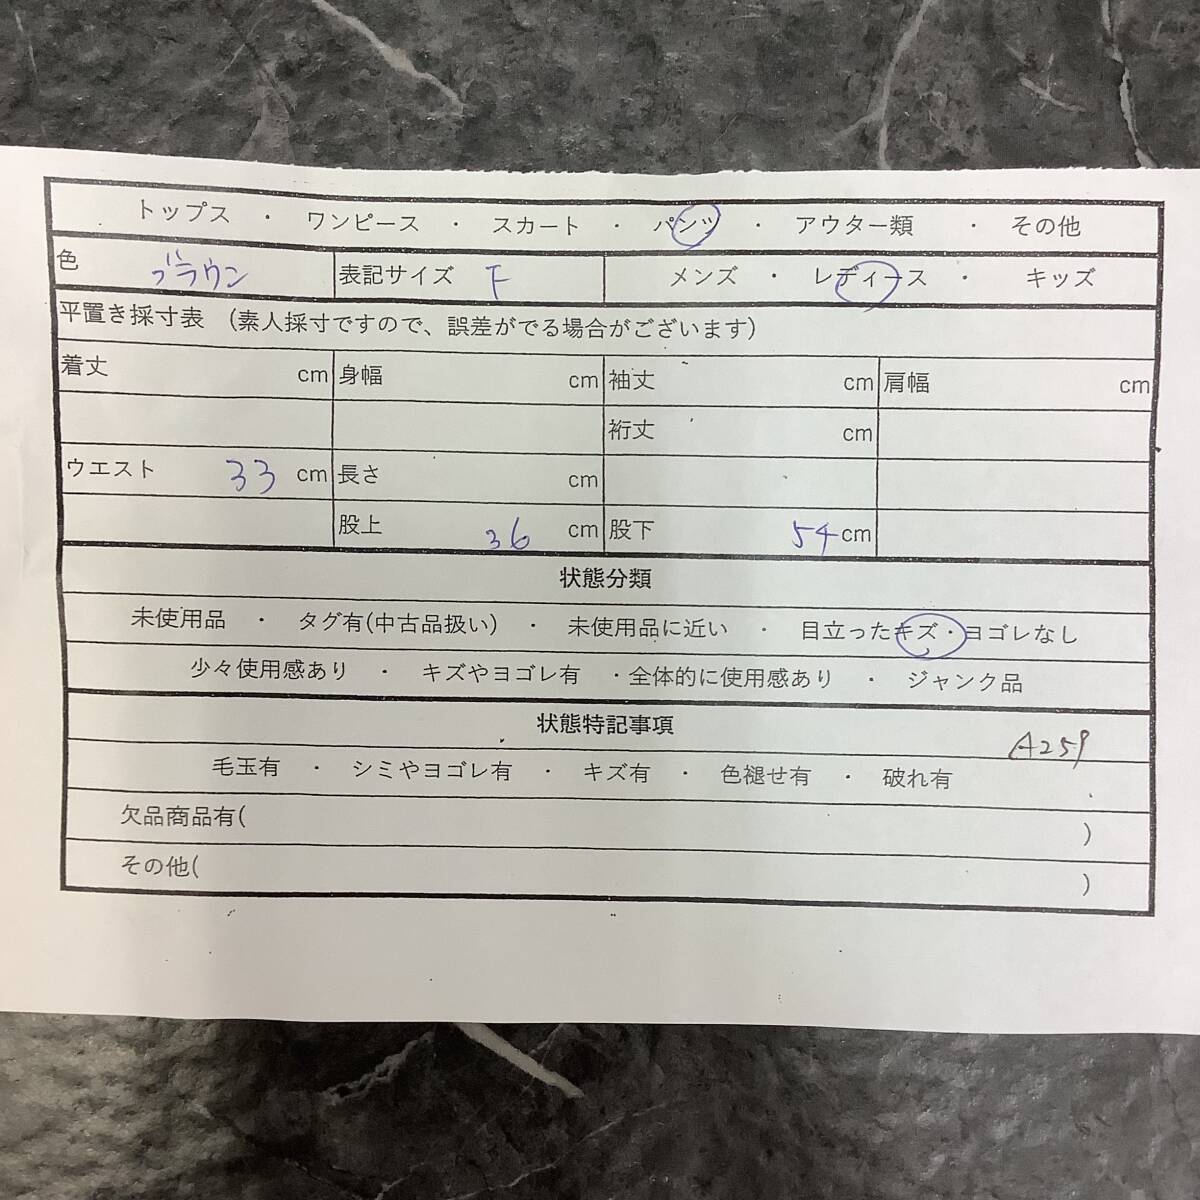 トップス ・ ワンピース ・ スカート ・ パンツ ・ アウター類 ・ その他
色 ブラウン 表記サイズ F メンズ ・ レディース ・ キッズ
平置き採寸表 (素人採寸ですので、誤差がでる場合がございます)
着丈 cm 身幅 cm 袖丈 cm 肩幅 cm
裄丈 cm
ウエスト 33 cm 長さ cm
股上 36 cm 股下 54 cm
状態分類
未使用品 ・ タグ有(中古品扱い) ・ 未使用品に近い ・ 目立ったキズ・ヨゴレなし
少々使用感あり ・ キズやヨゴレ有 ・全体的に使用感あり ・ ジャンク品
状態特記事項
A259
毛玉有 ・ シミやヨゴレ有 ・ キズ有 ・ 色褪せ有 ・ 破れ有
欠品商品有( )
その他( )